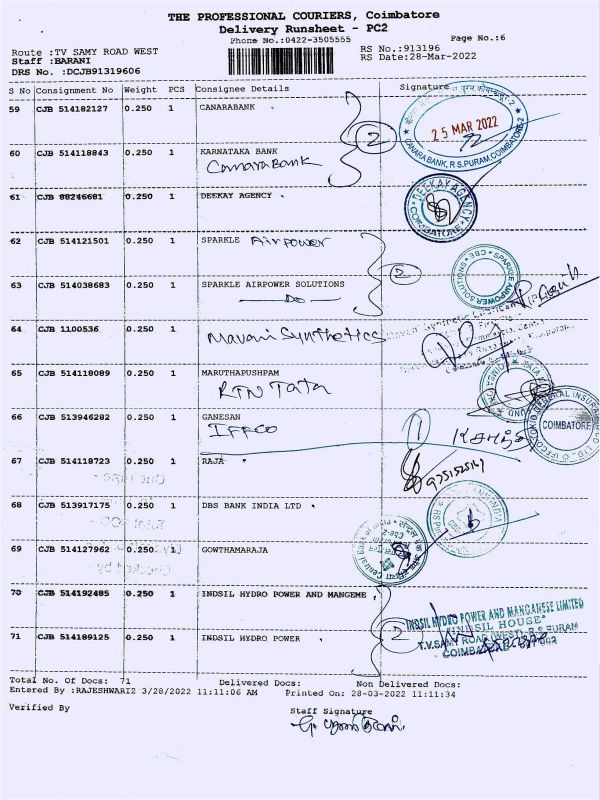 THE PROFESSIONAL COURIERS, Coimbatore
Delivery Runsheet - PC2
Phone No.:0422-3505555
Page No.:6
Route :TV SAMY ROAD WEST
RS No.:913196
Staff :BARANI
RS Date:28-Mar-2022
DRS No. :DCJB91319606
S No Consignment No Weight PCS Consignee Details Signature
59 CJB 514182127 0.250 1 CANARABANK
25 MAR 2022
CANARA BANK, R.S.PURAM, COIMBATORE-2
2
60 CJB 514118843 0.250 1 KARNATAKA BANK
Canara Bank
61 CJB 88246681 0.250 1 DEEKAY AGENCY
DEEKAY AGENCY
COIMBATORE
62 CJB 514121501 0.250 1 SPARKLE Airpower
2
SPARKLE AIRPOWER SOLUTIONS * CBE *
63 CJB 514038683 0.250 1 SPARKLE AIRPOWER SOLUTIONS
Do
64 CJB 1100536 0.250 1 Mavani Synthetics
65 CJB 514118089 0.250 1 MARUTHAPUSHPAM
RTN Tata
66 CJB 513946282 0.250 1 GANESAN
IFFCO
COIMBATORE
67 CJB 514118723 0.250 1 RAJA
68 CJB 513917175 0.250 1 DBS BANK INDIA LTD
69 CJB 514127962 0.250 1 GOWTHAMARAJA
70 CJB 514192485 0.250 1 INDSIL HYDRO POWER AND MANGEME
INDSIL HYDRO POWER AND MANGANESE LIMITED
"INDSIL HOUSE"
T.V.SAMY ROAD (WEST), R.S.PURAM
COIMBATORE
2
71 CJB 514189125 0.250 1 INDSIL HYDRO POWER
Total No. Of Docs: 71 Delivered Docs: Non Delivered Docs:
Entered By :RAJESHWARI2 3/28/2022 11:11:06 AM Printed On: 28-03-2022 11:11:34
Verified By
Staff Signature